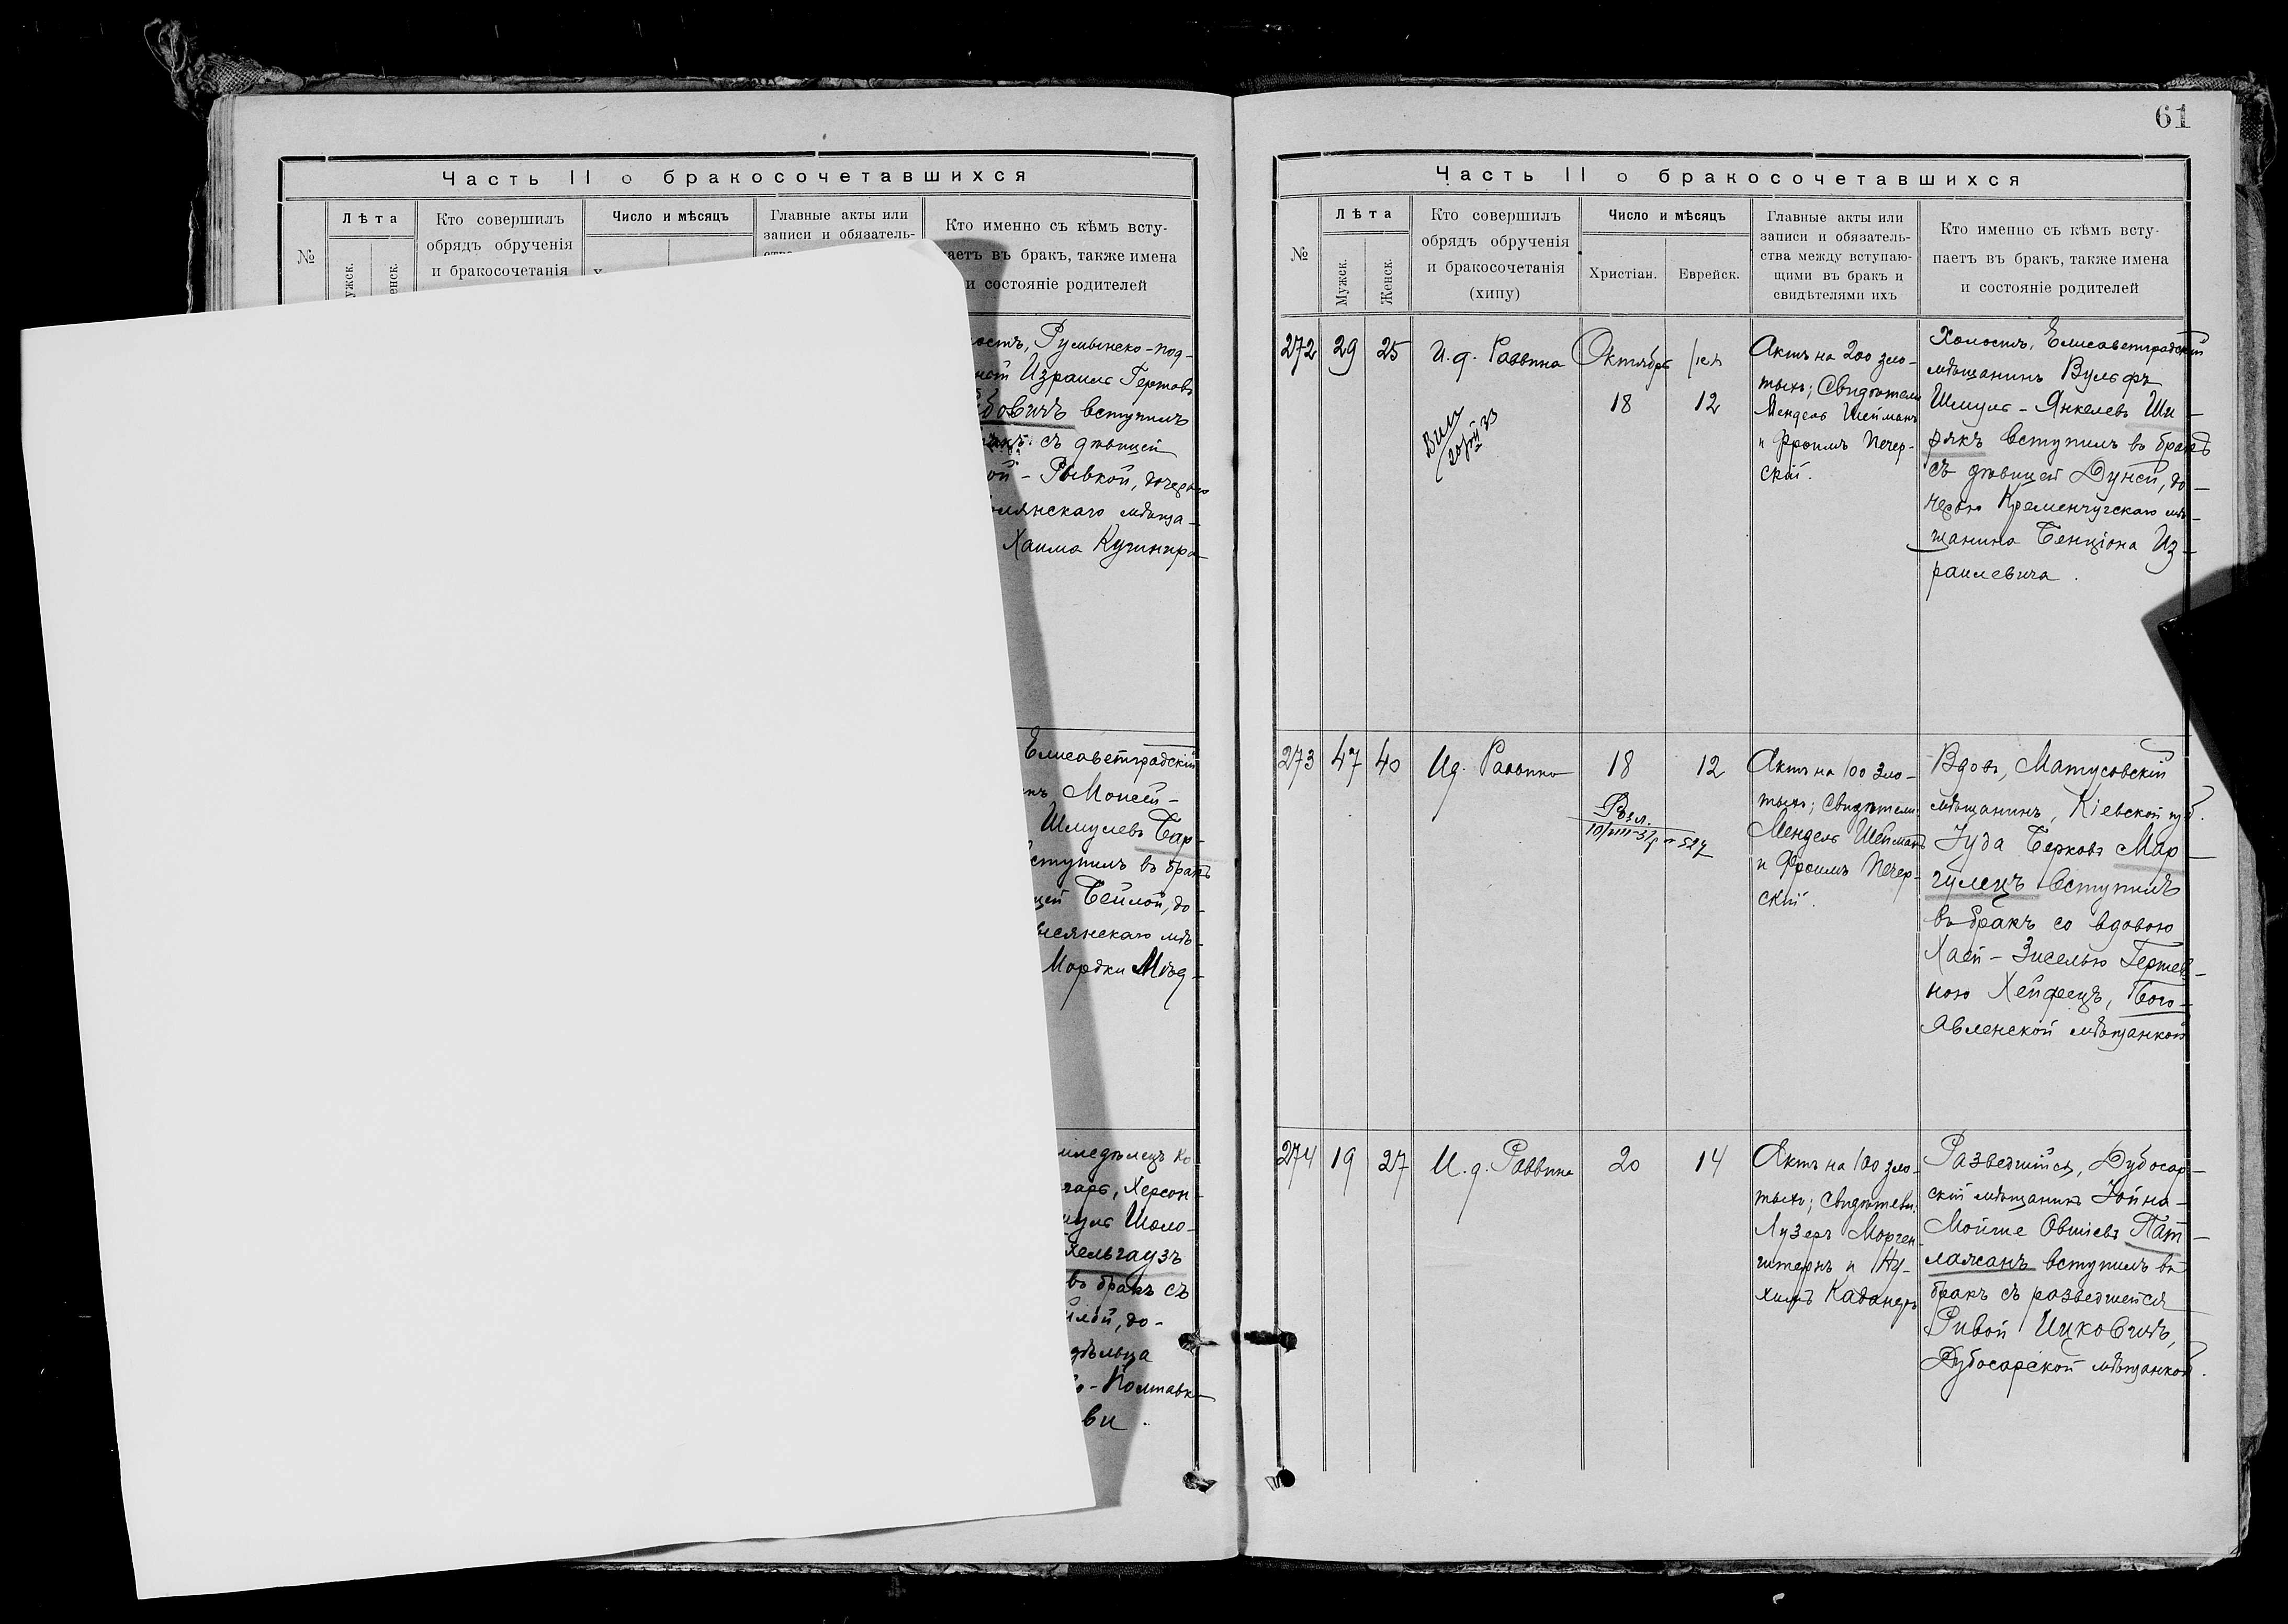 Часть II о бракосочетавшихся
№
Лѣта
Кто совершилъ
обрядъ обрученія
и бракосочетанія
Число и мѣсяцъ
Главные акты или
записи и обязатель-
Кто именно съ кѣмъ всту-
паетъ въ бракъ, также имена
и состояніе родителей
Румынско-под-
Израиль Гершовъ
вступилъ
съ дѣвицей
Рывкой, дочерью
мѣща-
Хаима Кушнира
Елисаветградскій
Моисей-
Шмулевъ Бар-
вступилъ въ бракъ
Бейлой, до-
мѣ-
Мордки Мѣд-
Херсон-
Шоло-
хельгаузъ
въ бракъ съ
до-
дѣльца
Полтавк-
61
Часть II о бракосочетавшихся
№
Лѣта
Мужск.
Женск.
Кто совершилъ
обрядъ обрученія
и бракосочетанія
(хипу)
Число и мѣсяцъ
Христіан.
Еврейск.
Главные акты или
записи и обязатель-
ства между вступаю-
щими въ бракъ и
свидѣтелями ихъ
Кто именно съ кѣмъ всту-
паетъ въ бракъ, также имена
и состояніе родителей
272 29 25
И.д. Раввина
Октября
18
12
Актъ на 200 зло-
тыхъ; Свидѣтели
Мендель Шейманъ
и Фроимъ Печер-
скій.
Холостъ, Елисаветградскій
мѣщанинъ Вульфъ
Шмуль-Янкелевъ Ши-
рякъ вступилъ въ бракъ
съ дѣвицей Дуней, до-
черью Кременчугскаго мѣ-
щанина Бенціона Из-
раилевича.
273 47 40
И.д. Раввина
18
12
Актъ на 100 зло-
тыхъ; Свидѣтели:
Мендель Шейманъ
и Фроимъ Печер-
скій.
Вдовъ, Матусовскій
мѣщанинъ, Кіевской губ.
Іуда Берковъ Мар-
гулецъ вступилъ
въ бракъ со вдовою
Хаей-Зиселью Гершев-
ною Хейфецъ, Бого-
явленской мѣщанкой
274 19 27
И.д. Раввина
20
14
Актъ на 100 зло-
тыхъ; Свидѣтели:
Лузеръ Морген-
штернъ и Ну-
химъ
Разведшійся, Дубосар-
скій мѣщанинъ Іойна-
Мойше Овшіевъ Пат-
лажанъ вступилъ въ
бракъ съ разведшейся
Ривой Ицковичъ,
Дубосарской мѣщанкой.